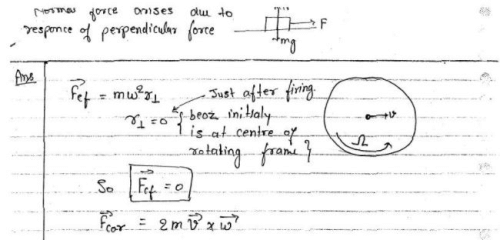 Normal force arises due to
responce of perpendicular force
F
mg
Ans
F⃗cf = mω²r⊥
Just after firing
r⊥=0 { beoz initialy
is at centre of
rotating frame }
v
Ω
So F⃗cf = 0
F⃗cor = 2m v⃗ x ω⃗